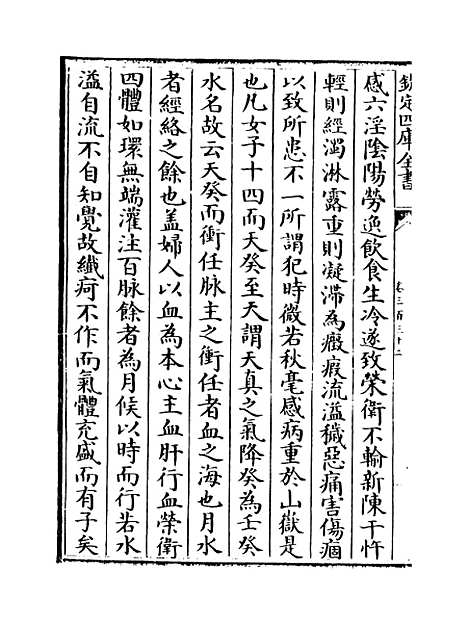 欽定四庫全書
卷三百三十二
感六淫陰陽勞逸飲食生冷遂致榮衛不輸新陳干忤
輕則經濁淋露重則凝滯為癥瘕流溢穢惡痛害傷痼
以致所患不一所謂犯時微若秋毫感病重於山嶽是
也凡女子十四而天癸至天謂天真之氣降癸為壬癸
水名故云天癸而衝任脉主之衝任者血之海也月水
者經絡之餘也盖婦人以血為本心主血肝行血榮衛
四體如環無端灌注百脉餘者為月候以時而行若水
溢自流不自知覺故纎疴不作而氣體充盛而有子矣